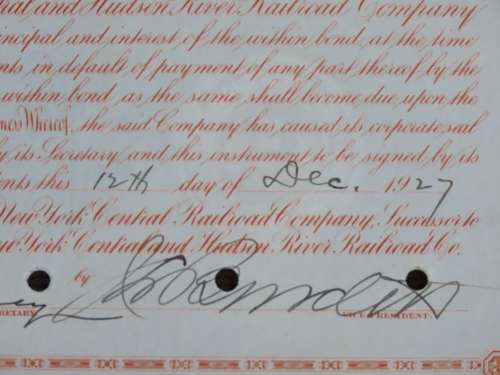 ral and Hudson River Railroad Company
rincipal and interest of the within bond, at the time
nts, in default of payment of any part thereof by the
within bond, as the same shall become due, upon the
ness Whereof, the said Company has caused its corporate seal
y its Secretary and this instrument to be signed by its
ents this 12th day of Dec. 1927
New York Central Railroad Company, Successor to
w York Central and Hudson River Railroad Co.
by
RETARY. VICE PRESIDENT.